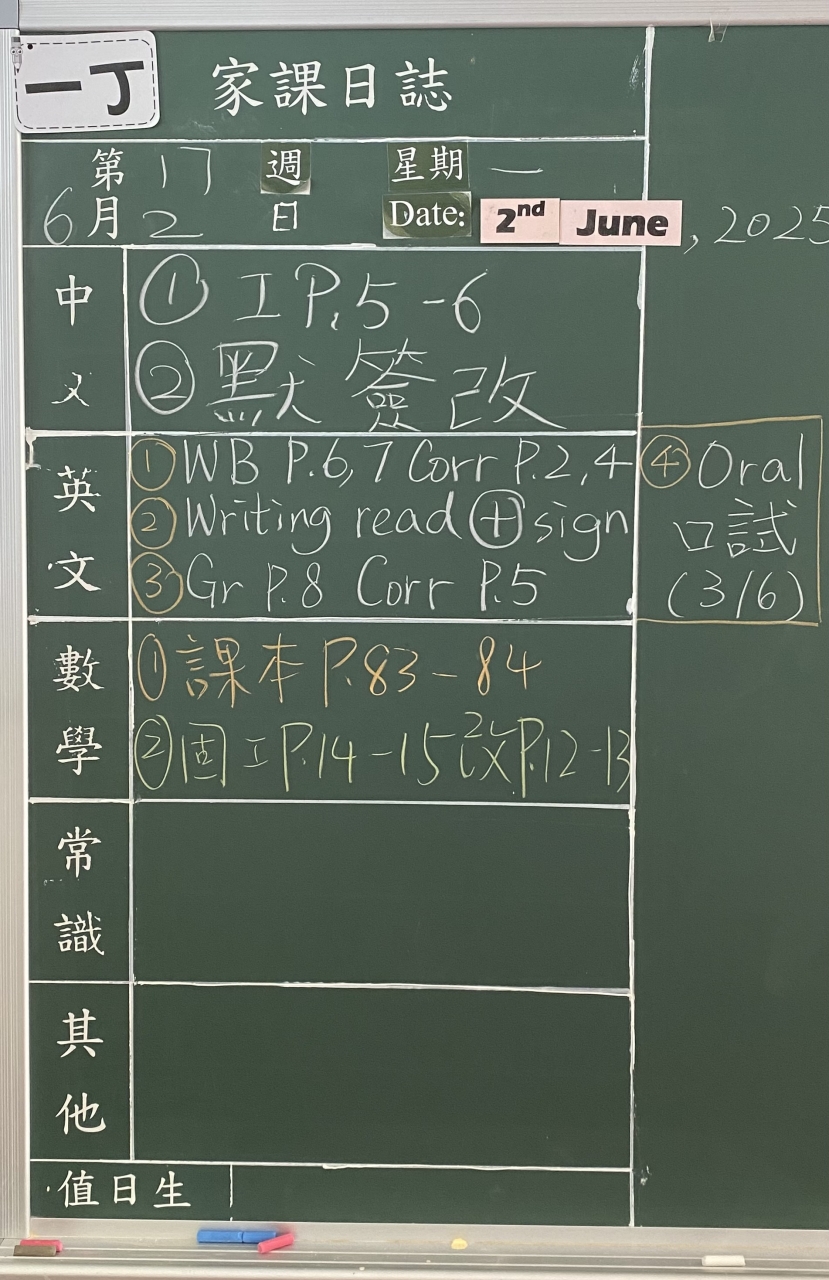 一丁
家課日誌
第17週 星期一
6月2日 Date: 2nd June, 2025
中文
① 工 P.5-6
② 默 簽 改
英文
① WB P.6,7 Corr P.2,4
② Writing read ⊕ sign
③ Gr P.8 Corr P.5
④ Oral
口試
(3/6)
數學
① 課本 P.83-84
② 固工 P.14-15 改 P.12-13
常識
其他
值日生